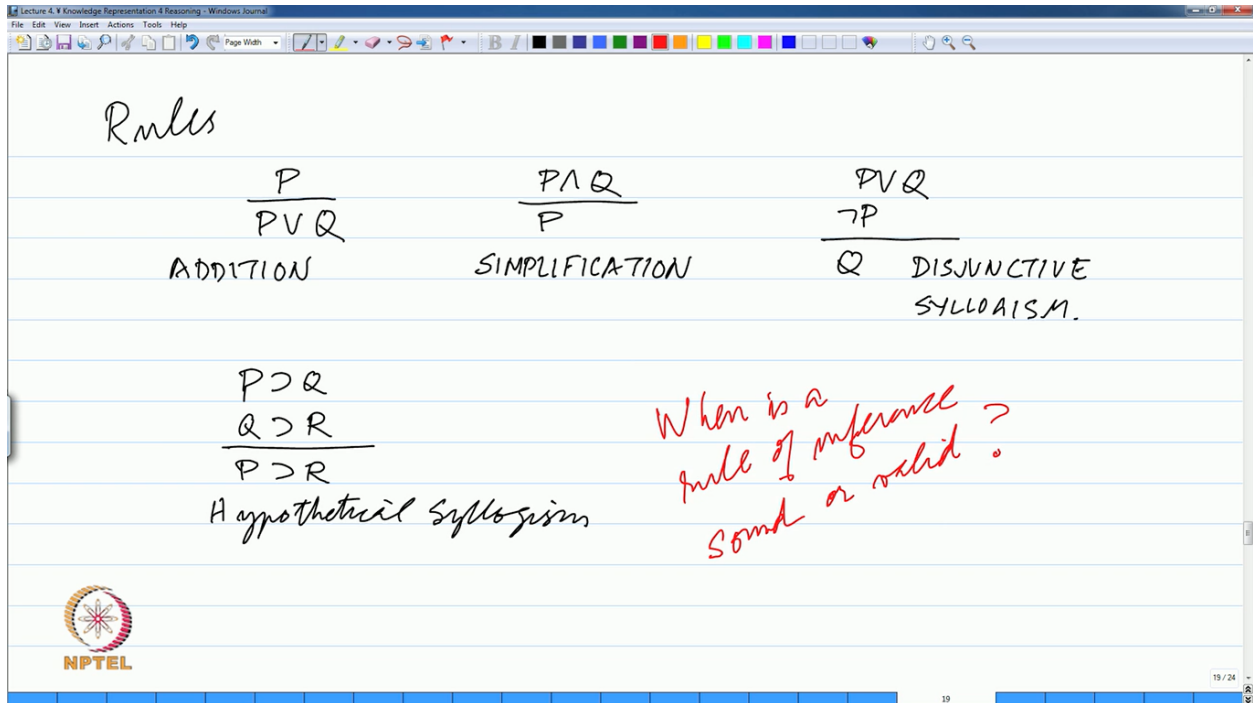 Lecture 4. ¥ Knowledge Representation 4 Reasoning - Windows Journal
File Edit View Insert Actions Tools Help
Page Width B I
Rules
P P∧Q P∨Q
P∨Q P ¬P
ADDITION SIMPLIFICATION Q DISJUNCTIVE
SYLLOGISM.
P⊃Q
Q⊃R
P⊃R
Hypothetical Syllogism
When is a
rule of inference
sound or valid ?
NPTEL
19 / 24
19